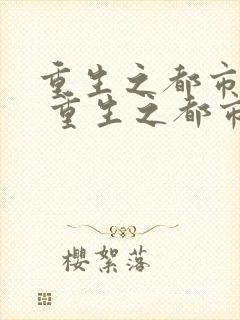 重生之都市
重生之都市
櫻絮落